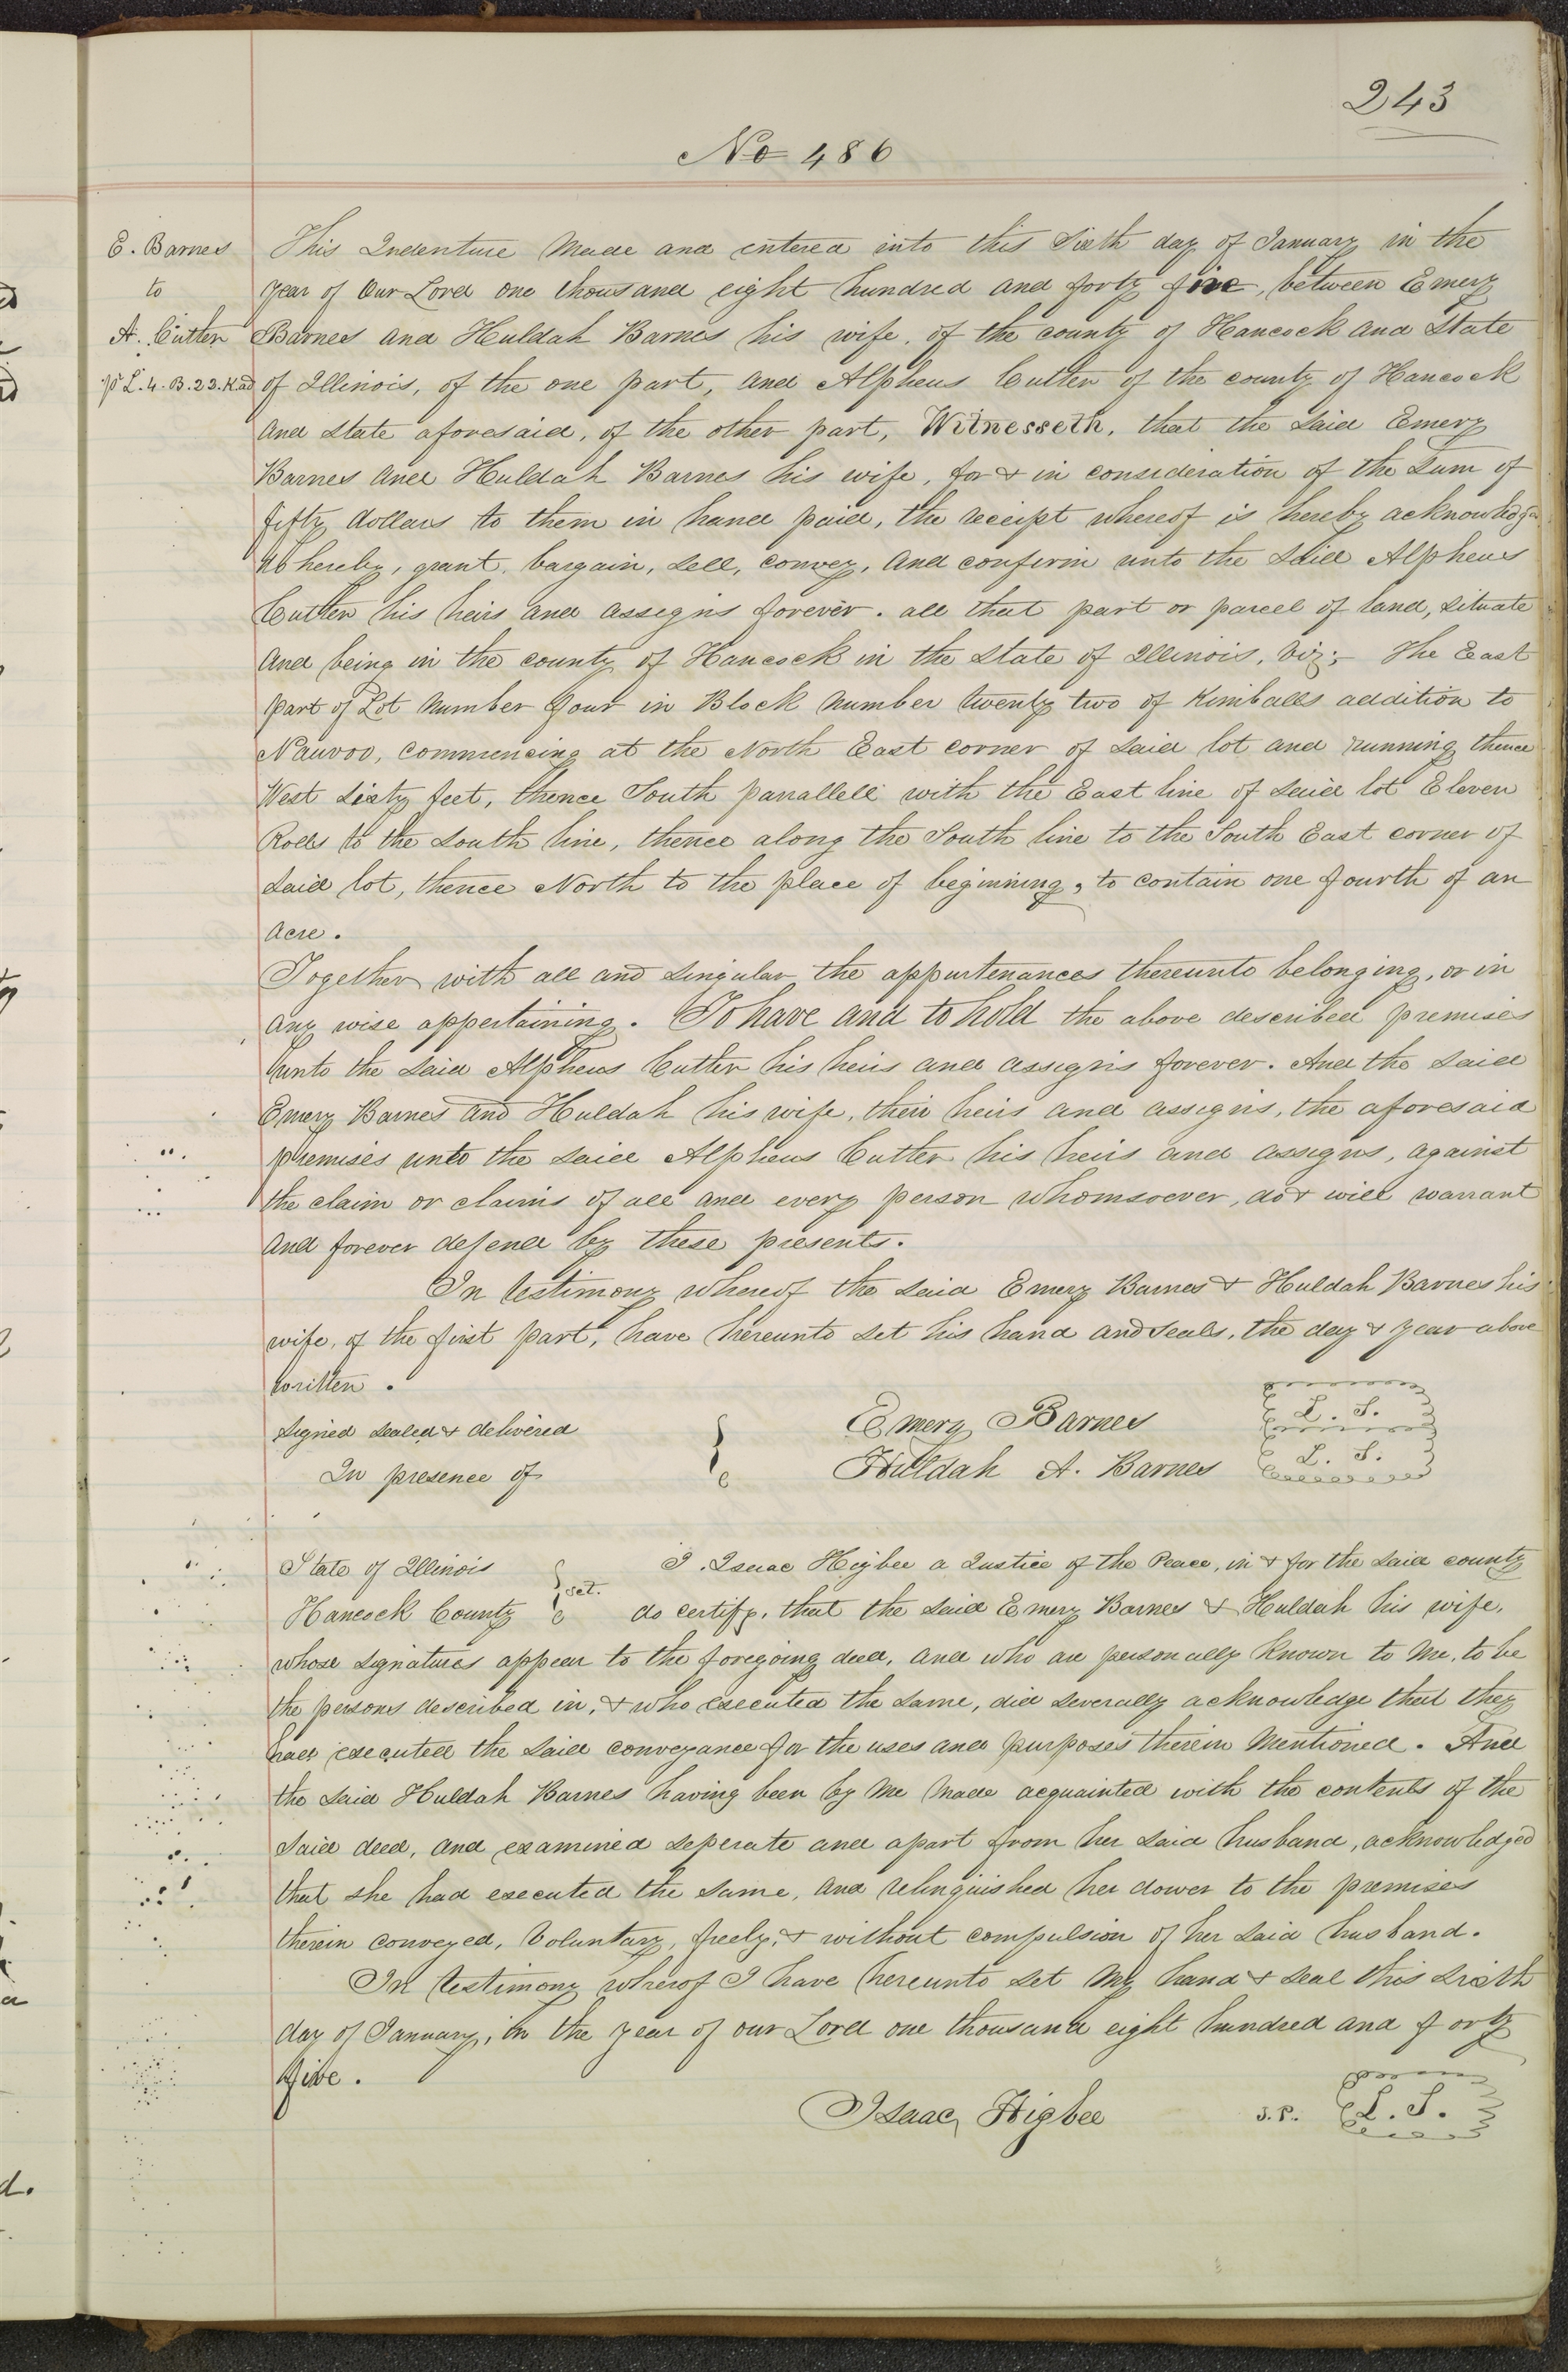 243
No 486
E. Barnes
to
A. Cutler
pt L. 4. B. 23. K. ad
This Indenture Made and entered into this Sixth day of January in the
year of Our Lord one thousand eight hundred and forty five, between Emery
Barnes and Huldah Barnes his wife, of the county of Hancock and State
of Illinois, of the one part, and Alpheus Cutler of the county of Hancock
and State aforesaid, of the other part, Witnesseth, that the said Emery
Barnes and Huldah Barnes his wife, for & in consideration of the Sum of
fifty dollars to them in hand paid, the receipt whereof is hereby acknowledged
do hereby, grant, bargain, sell, convey, and confirm unto the said Alpheus
Cutler his heirs and assigns forever. all that part or parcel of land, situate
and being in the county of Hancock in the State of Illinois, viz;- The East
part of Lot Number four in Block Number twenty two of Kimballs addition to
Nauvoo, commencing at the North East corner of said lot and running thence
West Sixty feet, thence South parrallell with the East line of said lot Eleven
Rods to the South line, thence along the South line to the South East corner of
said lot, thence North to the place of beginning, to contain one fourth of an
acre.
Together with all and singular the appurtenances thereunto belonging, or in
any wise appertaining. To have and to hold the above described premises
unto the said Alpheus Cutler his heirs and assigns forever. And the said
Emery Barnes and Huldah his wife, their heirs and assigns, the aforesaid
premises unto the said Alpheus Cutler his heirs and assigns, against
the claim or claims of all and every person whomsoever, do & will warrant
and forever defend by these presents.
In testimony whereof the said Emery Barnes & Huldah Barnes his
wife, of the first part, have hereunto set his hand and seals, the day & year above
written.
Signed sealed & delivered
In presence of
Emery Barnes L. S.
Huldah A. Barnes L. S.
State of Illinois
Hancock County
sct.
I. Isaac Higbee a Justice of the Peace, in & for the said county
do certify, that the said Emery Barnes & Huldah his wife,
whose signatures appear to the foregoing deed, and who are personally known to me, to be
the persons described in, & who executed the same, did severally acknowledge that they
had executed the said conveyance for the uses and purposes therein mentioned. And
the said Huldah Barnes having been by me made acquainted with the contents of the
said deed, and examined seperate and apart from her said husband, acknowledged
that she had executed the same, and relinquished her dower to the premises
therein conveyed, Voluntary, freely, & without compulsion of her said husband.
In testimony wherof I have hereunto set my hand & seal this sixth
day of January, in the year of our Lord one thousand eight hundred and forty
five.
Isaac Higbee J. P. L. S.